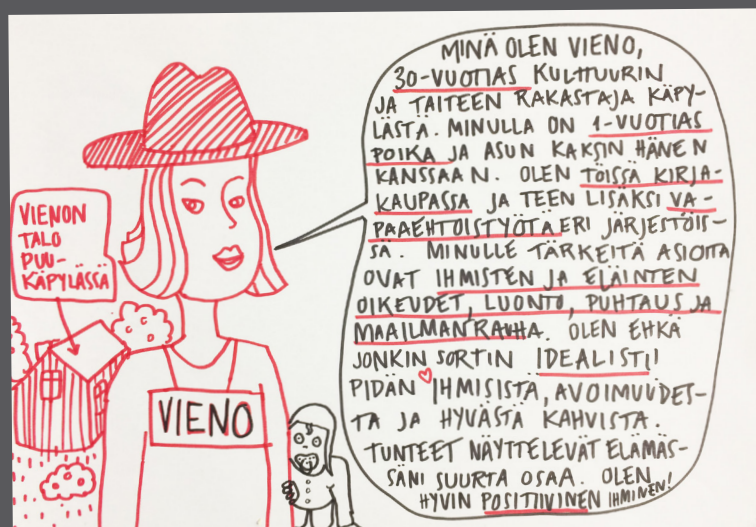 MINÄ OLEN VIENO,
30-VUOTIAS KULTTUURIN
JA TAITEEN RAKASTAJA KÄPY-
LÄSTÄ. MINULLA ON 1-VUOTIAS
POIKA JA ASUN KAKSIN HÄNEN
KANSSAAN. OLEN TÖISSÄ KIRJA-
KAUPASSA JA TEEN LISÄKSI VA-
PAAEHTOISTYÖTÄ ERI JÄRJESTÖIS-
SÄ. MINULLE TÄRKEITÄ ASIOITA
OVAT IHMISTEN JA ELÄINTEN
OIKEUDET, LUONTO, PUHTAUS JA
MAAILMANRAUHA. OLEN EHKÄ
JONKIN SORTIN IDEALISTI!
PIDÄN IHMISISTÄ, AVOIMUUDES-
TA JA HYVÄSTÄ KAHVISTA.
TUNTEET NÄYTTELEVÄT ELÄMÄS-
SÄNI SUURTA OSAA. OLEN
HYVIN POSITIIVINEN IHMINEN!
VIENON
TALO
PUU-
KÄPYLÄSSÄ
VIENO